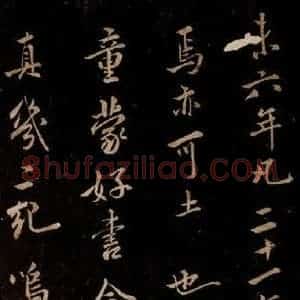 未六年九二十一
焉亦可土也
童蒙好書念
真幾三紀嗚
Shufaziliao.com